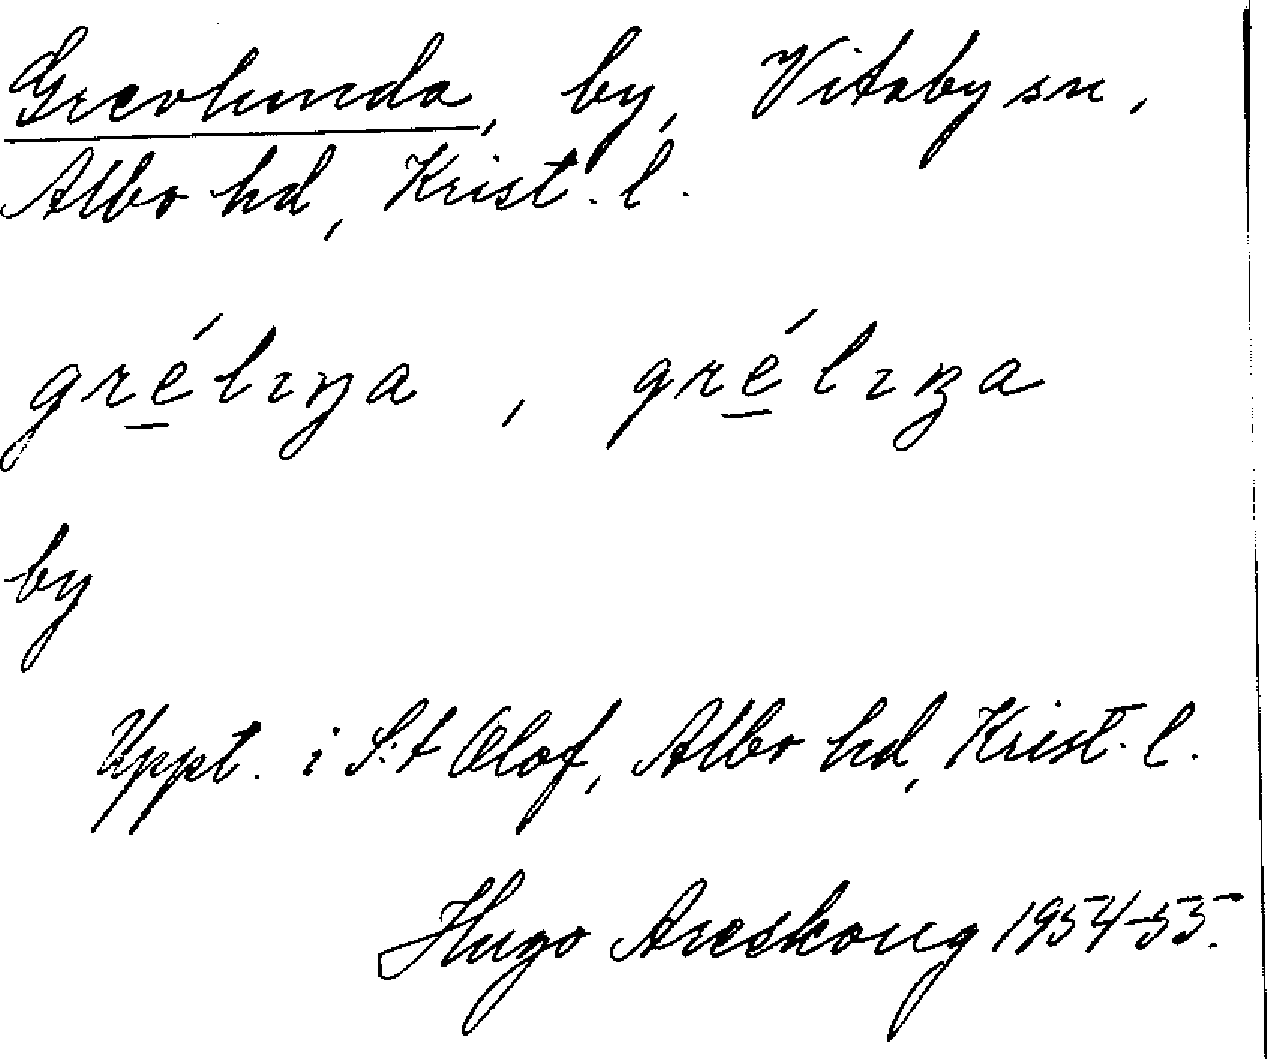 Grevlunda, by, Vitaby sn,
Albo hd, Krist. l.
by
Uppt. i S:t Olof, Albo hd, Krist. l.
Hugo Areskoug 1954-55.